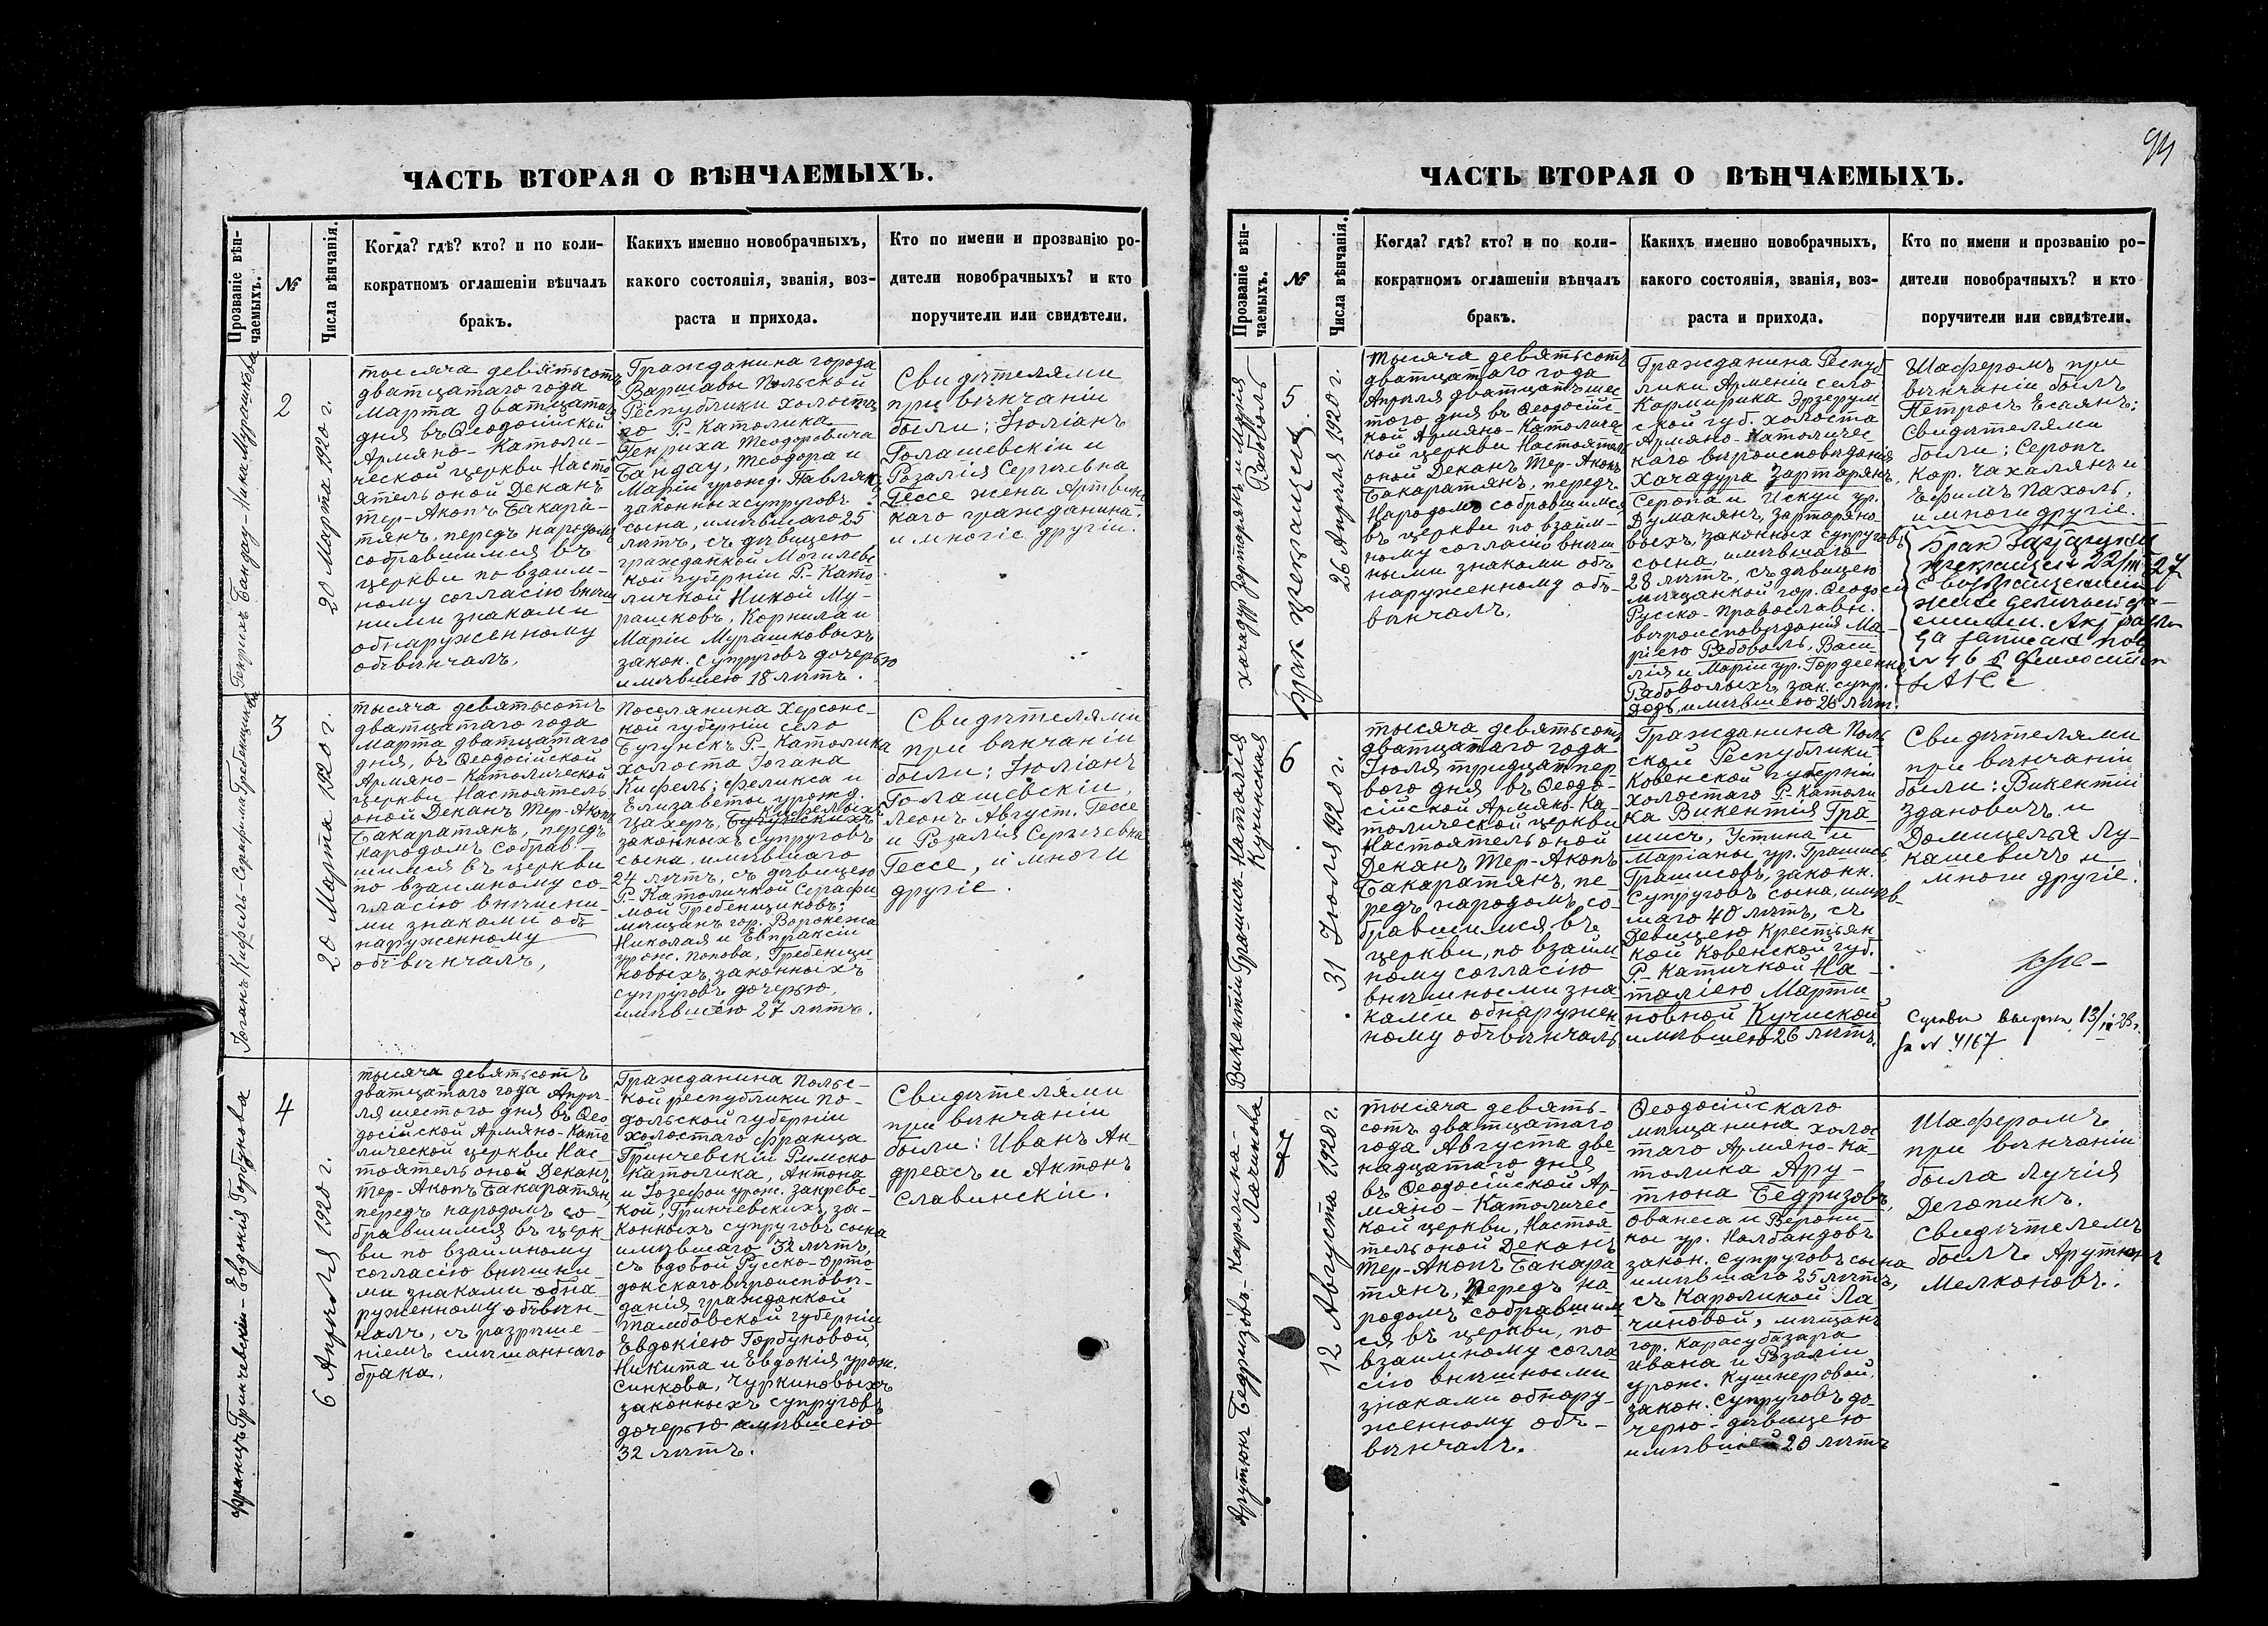 ЧАСТЬ ВТОРАЯ О ВѢНЧАЕМЫХЪ.
Прозваніе вѣн-
чаемыхъ.
№
Числа вѣнчанія.
Когда? гдѣ? кто? и по коли-
кократномъ оглашеніи вѣнчалъ
бракъ.
Какихъ именно новобрачныхъ,
какого состоянія, званія, воз-
раста и прихода.
Кто по имени и прозванію ро-
дители новобрачныхъ? и кто
поручители или свидѣтели.
Генрихъ Бандау - Ника Мурашкова
2
20 Марта 1920 г.
тысяча девятьсотъ
двατцатаго года
Марта двατцатаго
дня въ Ѳеодосійской
Армяно-Католи-
ческой церкви Насто
ятель оной Деканъ
Тер-Акопъ Бакара-
тянъ, передъ народомъ
собравшимся въ
церкви по взаим-
ному согласію внѣш
ними знаками
обнаруженному
обвѣнчалъ.
Гражданина города
Варшавы Польской
Республики холоста
го Р.-Католика
Генриха Теодоровича
Бандау, Теодора и
Маріи урожд. Павляк
законных супруговъ
сына, имѣвшаго 25
лѣтъ, съ дѣвицею
гражданкой Могилевс
кой губерніи Р.-Като
личкой Никой Му-
рашковъ, Корнила и
Маріи Мурашковыхъ
закон. супруговъ дочерью
имѣвшею 18 лѣтъ.
Свидѣтелями
при вѣнчаніи
были: Юліанъ
Голашевскіи и
Розалія Сергѣевна
Гессе жена Артвинс
каго гражданина.
и многіе другіи.
Іоганъ Кифель - Серафима Гребенщикова
3
20 Марта 1920 г.
тысяча девятьсотъ
дватцатаго года
Марта дватцатаго
дня, въ Ѳеодосійской
Армяно-Католической
церкви Настоятель
оной Деканъ Тер-Акопъ
Бакаратянъ, передъ
народомъ собрав-
шимся въ церкви
по взаимному со-
гласію внѣшни-
ми знаками об-
наруженному
обвѣнчалъ,
Поселянина Херсонс-
кой губерніи село
Р.-Католика
холоста Іогана
Кифель; Феликса и
Елизаветы урожд.
Цахеръ, Кифелыхъ
законныхъ супруговъ
сына, имѣвшаго
24 лѣтъ, съ дѣвицею
Р.-Католичкой Серафи-
мой Гребенщиковъ;
мѣщанъ гор. Воронежа
Николая и Евпраксіи
урож. Попова, Гребенщи
ковыхъ, законныхъ
супруговъ дочерью,
имѣвшею 27 лѣтъ.
Свидѣтелями
при вѣнчаніи
были: Юліанъ
Голашевскіи,
Леонъ Август. Гессе
и Розалія Сергѣевна
Гессе, и многи
другіе.
Францъ Гринчевскіи - Евдокія Горбунова
4
6 Апрѣля 1920 г.
тысяча девятьсотъ
дватцатаго года Апрѣ-
ля шестого дня въ Ѳео
досійской Армяно-Като
лической церкви Нас-
тоятель оной Деканъ
Тер-Акопъ Бакаратян,
передъ народомъ со-
бравшимся въ церк
ви по взаимному
согласію внѣшни-
ми знаками обна-
руженному обвѣн-
чалъ, съ разрѣше-
ніемъ смѣшаннаго
брака.
Гражданина Польс-
кой республики По-
дольской губерніи
холостаго Франца
Гринчевскіи Римско
Католика, Антона
и Іозефы урож. Закревс-
кой, Гринчевскихъ, за-
конныхъ супруговъ сына
имѣвшаго 32 лѣтъ,
съ вдовой Русско-Орто
доксаго вѣроисповѣ-
данія гражданкой
Тамбовской губерніи
Евдокіею Горбуновой,
Никита и Евдокія урож.
Синкова, Чуркиновыхъ
законныхъ супруговъ
дочерью имѣвшею
32 лѣтъ.
Свидѣтелями
при вѣнчаніи
были: Иванъ Ан-
дреасъ и Антонъ
Славинскіи.
ЧАСТЬ ВТОРАЯ О ВѢНЧАЕМЫХЪ.
Прозваніе вѣн-
чаемыхъ.
№
Числа вѣнчанія.
Когда? гдѣ? кто? и по коли-
кократномъ оглашеніи вѣнчалъ
бракъ.
Какихъ именно новобрачныхъ,
какого состоянія, званія, воз-
раста и прихода.
Кто по имени и прозванію ро-
дители новобрачныхъ? и кто
поручители или свидѣтели.
Хачадур Зартарянъ и Марія
Рябоволь
5
Брак прекращен.
26 Апрѣля 1920 г.
тысяча девятьсотъ
двατцатаго года
Апрѣля двατцатъ шес
того дня въ Ѳеодосійс-
кой Армяно-Католичес
кой церкви Настоятель
оной Деканъ Тер-Акопъ
Бакаратянъ, передъ
Народомъ собравшимся
въ церкви по взаим-
ному согласію внѣш
ными знаками обн
наруженному об-
вѣнчалъ.
Гражданина Респуб
лики Арменіи село
Кармирика Эрзерум
ской губ. холоста
Армяно-Католичес
каго вѣроисповѣданія
Хачадура Зартарянъ,
Серопа и Искуи ур.
Думанянъ, Зартаряно-
выхъ, законных супруговъ
сына, имѣвшаго
28 лѣтъ, съ дѣвицею
мѣщанкой гор. Ѳеодосіи
Русско-Православн.
вѣроисповѣданія Ма-
ріею Рябоволь, Васи
лія и Маріи ур. Гордеенко
Рабоволыхъ, зак. супр.
имѣвшею 26 лѣт.
Шаферомъ при
вѣнчаніи былъ
Петросъ Есаянъ;
Свидѣтелями
были; Серопъ
Кар. Чахалянъ и
Ефимъ Пахоль,
и многи другіе.
Брак
прекращен 22/III 27
с возвращением
жене девичьей фа-
милии. Акт разво
да записан под
№ 46 в Феодосийск
ЗАГСе
Викентіи Грашисъ - Наталія
Кучинская
6
31 Іюля 1920 г.
тысяча девятьсотъ
дватцатаго года
Іюля тридцатпер
вого дня въ Ѳеодо-
сійской Армяно-Ка-
толической церкви
Настоятель оной
Деканъ Тер-Акопъ
Бакаратянъ, пе-
редъ народомъ, со-
бравшимся въ
церкви, по взаим-
ному согласію
внѣшными зна
ками обнаружен
ному обвѣнчалъ
Гражданина Поль
ской Республики
Ковенской губерніи
холостаго Р. Католи
ка Викентія Гра-
шисъ, Устина и
Маріаны, ур. Грашисъ
Грашисовъ, законн.
Супруговъ сына, имѣв-
шаго 40 лѣтъ, съ
Девицею Крестьян
кой Ковенской губ.
Р. Катичкой На-
таліею Марти
новной Кучиской
имѣвшею 26 лѣтъ.
Свидѣтелями
при вѣнчаніи
были: Викентіи
Здановичъ и
Домицелья Лу-
кашевичъ и
многи другіе.
№ 4167
Арутюнъ Бедризовъ - Каролина -
Лачинова
7
12 Августа 1920 г.
тысяча девять-
сотъ двατцатаго
года Августа две
надцатаго дня
въ Ѳеодосійской Ар-
мяно-Католичес
кой церкви, Настоя
тель оной Деканъ
Тер-Акопъ Бакара
тянъ, передъ на-
родомъ собравшим
ся въ церкви, по
взаимному согла
сію внѣшными
знаками обнару-
женному об-
вѣнчалъ.
Ѳеодосійскаго
мѣщанина холос
таго Армяно-Ка-
толика Ару-
тюна Бедризовъ,
Ованеса и Верони-
ки ур. Налбандовъ
закон. супруговъ сына
имѣвшаго 25 лѣтъ,
съ Каролиной Ла-
чиновой, мѣщанъ
гор. Карасубазара
Ивана и Розаліи
урож. Кушнеровой,
закон. супруговъ до-
черю-дѣвицею
имѣвшей 20 лѣтъ
Шаферомъ
при вѣнчаніи
была Лучія
Дегопикъ.
Свидѣтелемъ
былъ Арутюнъ
Мелконовъ.